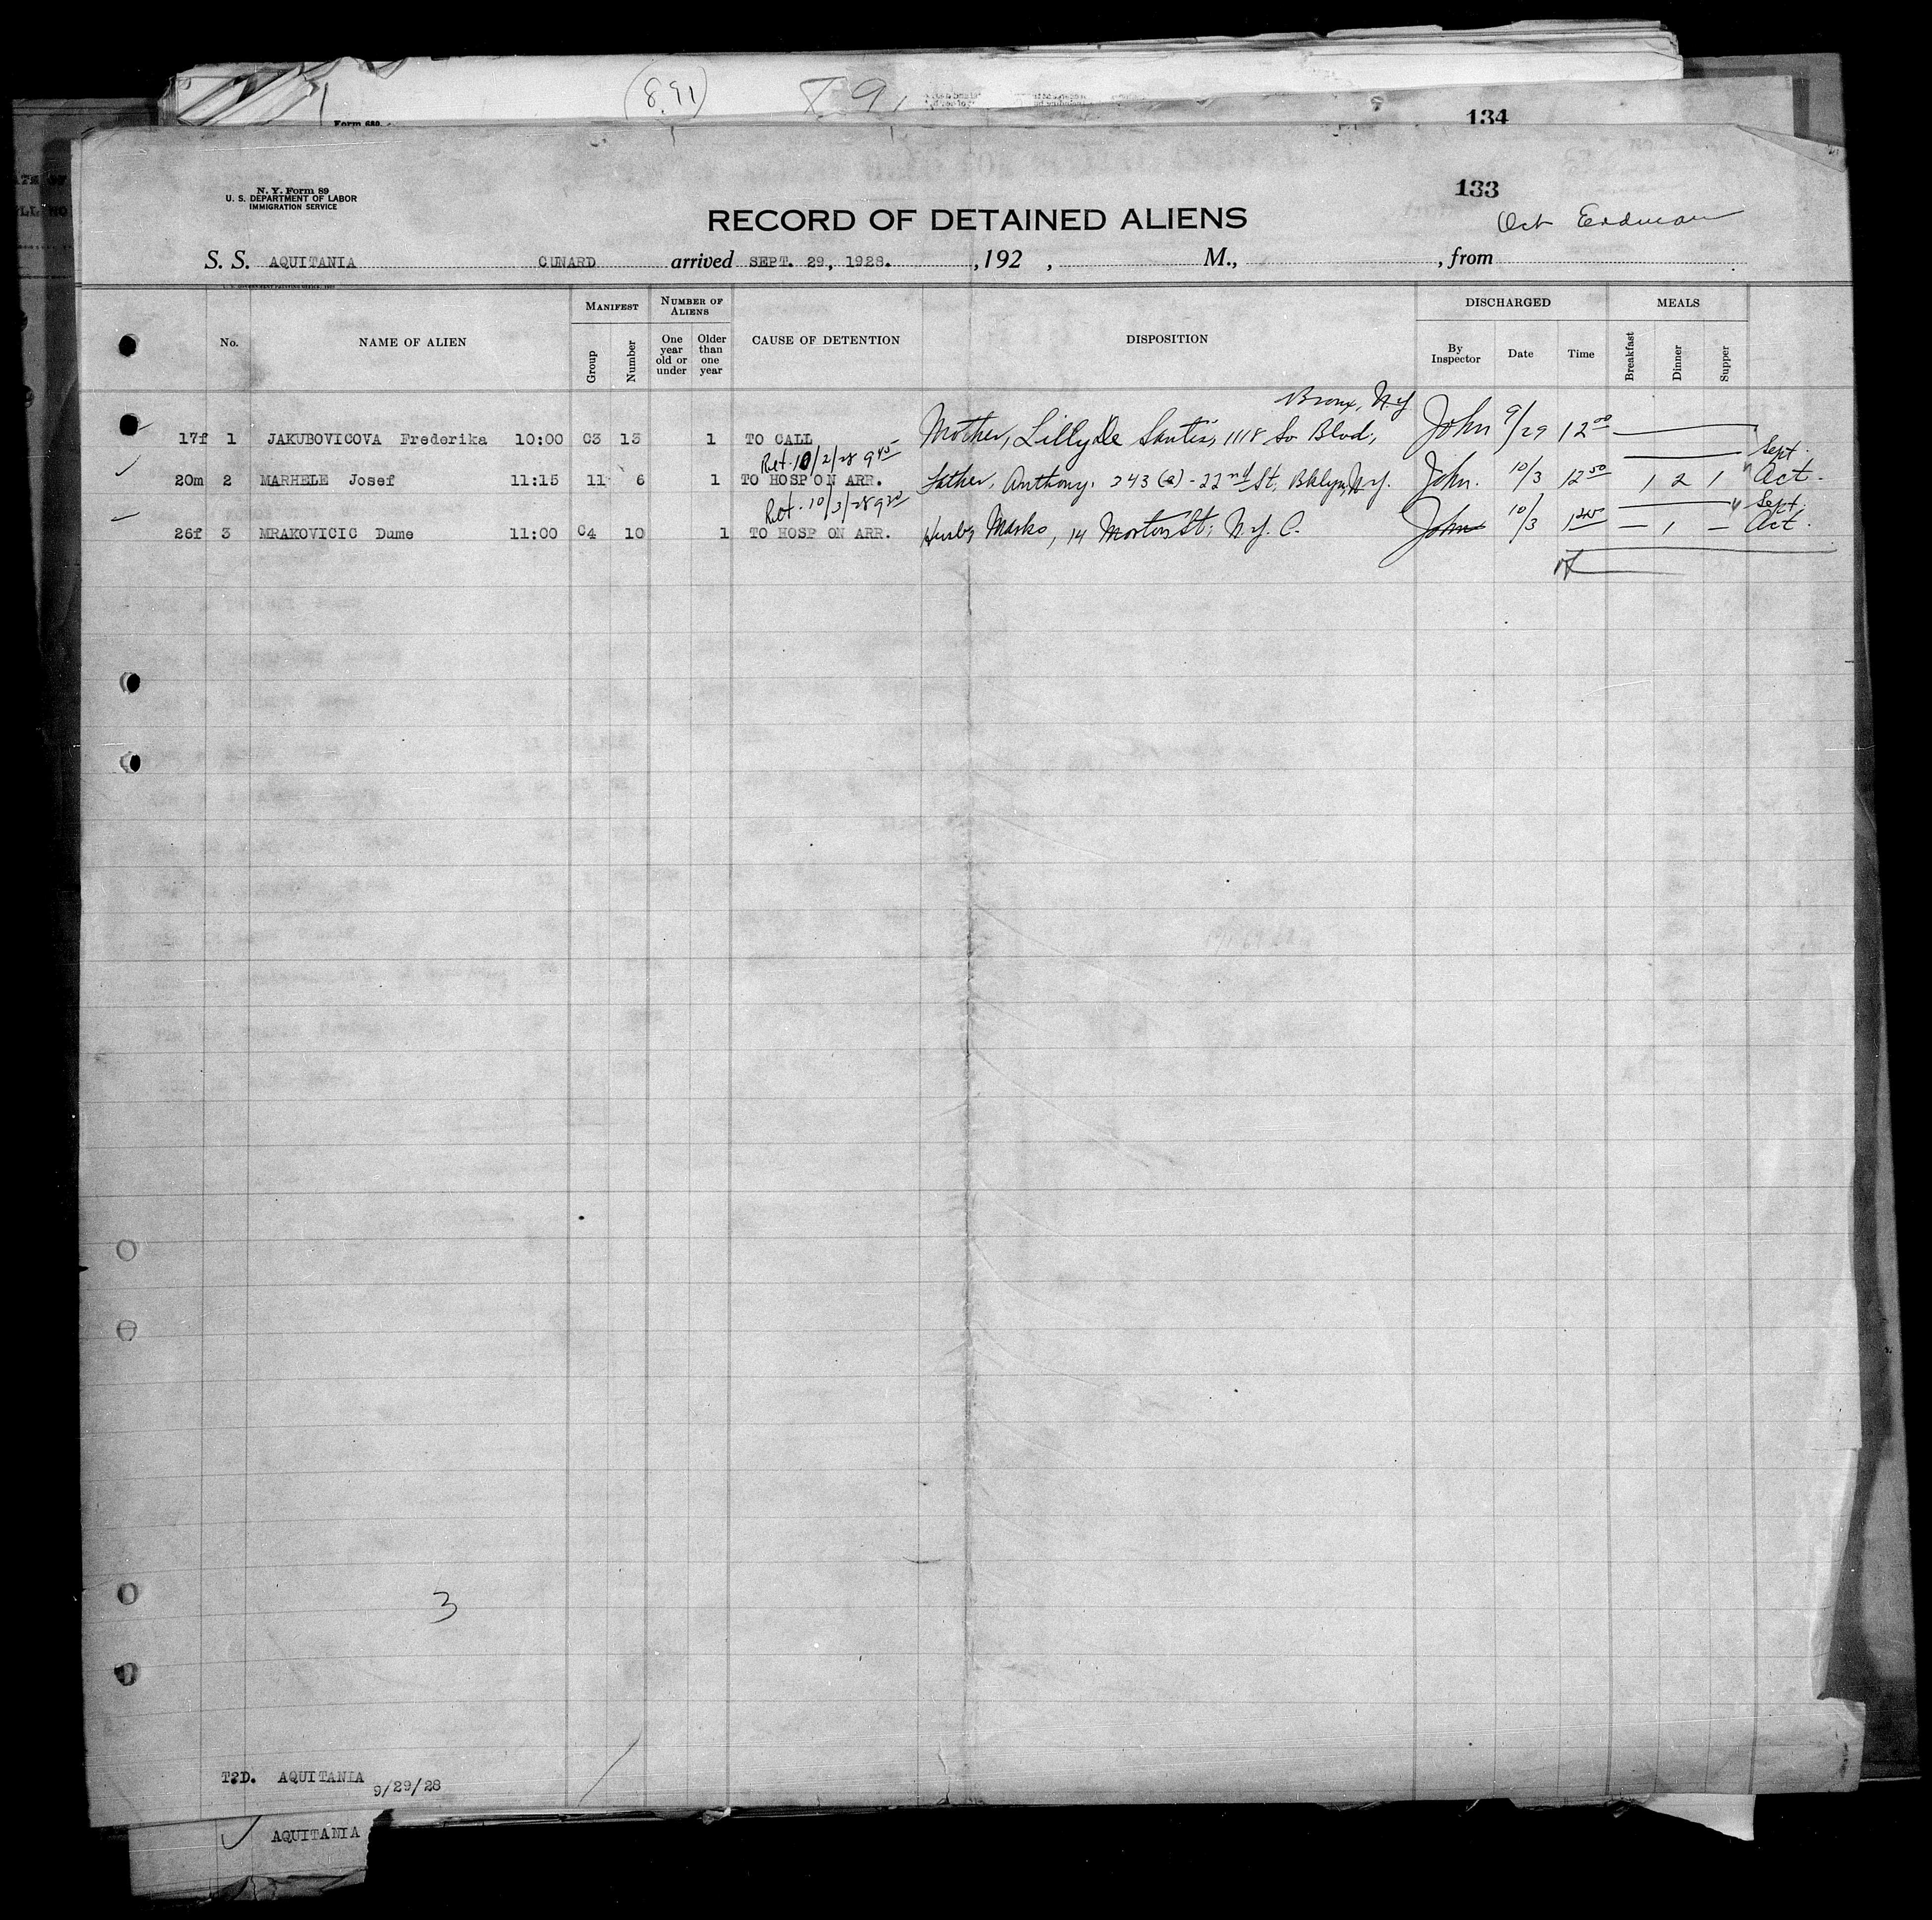 8.91
891
134
Form 680
133
N. Y. Form 89
U. S. DEPARTMENT OF LABOR
IMMIGRATION SERVICE
RECORD OF DETAINED ALIENS
Erdman
S. S. AQUITANIA CUNARD arrived SEPT. 29, 1928. , 192 , M., , from
No. NAME OF ALIEN MANIFEST Group Number NUMBER OF ALIENS One year old or under Older than one year CAUSE OF DETENTION DISPOSITION DISCHARGED By Inspector Date Time MEALS Breakfast Dinner Supper
Bronx, N.Y.
17f 1 JAKUBOVICOVA Frederika 10:00 C3 13 1 TO CALL Mother, Lilly De Santis, 1118 So Blvd, John 9/29 12 00
Ret. 10/2/28 9 45 Sept.
20m 2 MARHELE Josef 11:15 11 6 1 TO HOSP ON ARR. Father, Anthony. 243 (a) - 22nd St, Bklyn, N.Y. John. 10/3 12 50 1 2 1 " Act.
Ret. 10/3/28 9 20 Sept.
26f 3 MRAKOVICIC Dume 11:00 C4 10 1 TO HOSP ON ARR. Husb, Marko, 14 Morton St; N.Y.C. John 10/3 — 1 — " Act.
3
T?D. AQUITANIA 9/29/28
AQUITANIA